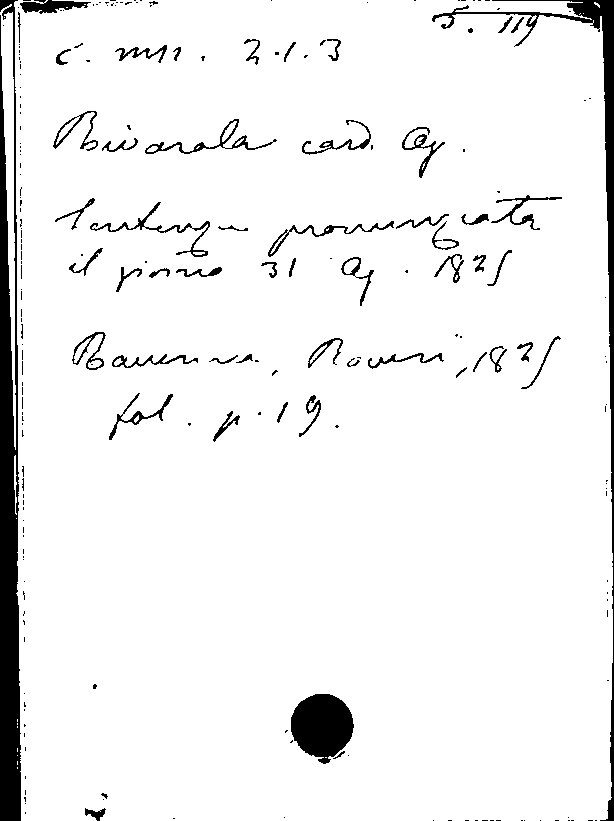 5. 119
c. mss. 2.1.3
Rivarola card. Ag.
Sentenza pronunziata
il giorno 31 Ag. 1825
Ravenna, Roveri, 1825
fol. p. 19.